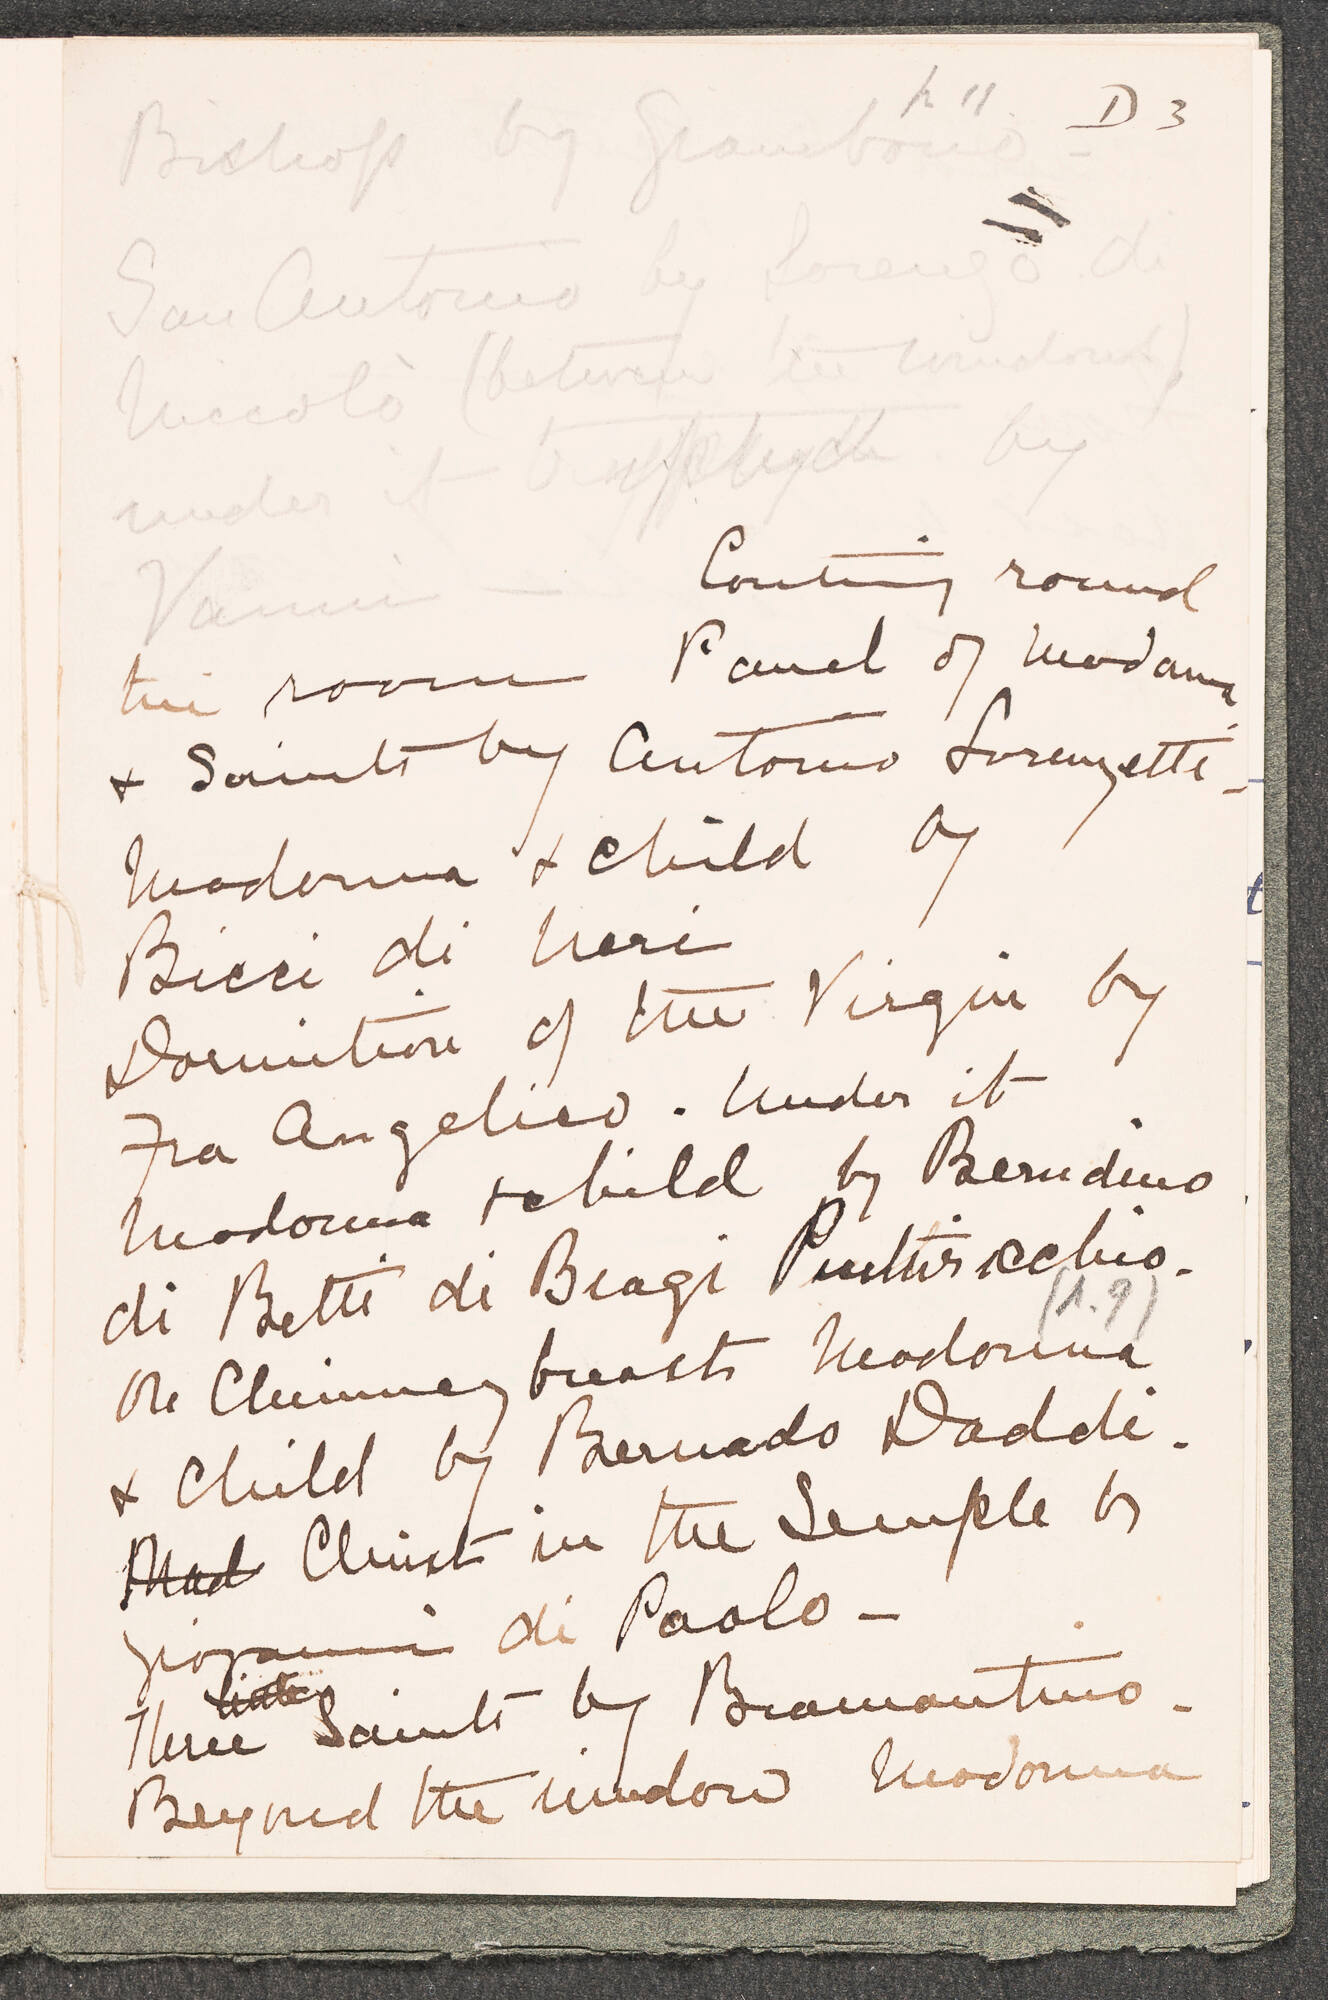 p 11 D 3
Bishop by Giambono -
San Antonio by Lorenzo di
Niccolò (between the windows)
under it tryptych by
Vanni - Conting round
the room Panel of Madonna
& Saints by Antonio Lorenzetti -
Madonna & Child by
Bicci di Neri
Dormition of the Virgin by
Fra Angelico. Under it
Madonna & child by Bernadino
di Betti di Biagi Pintiricchio -
(p. 9)
On Chimney breast Madonna
& Child by Bernado Daddi -
Mad Christ in the Temple by
Giovanni di Paolo -
Three Saints by Bramantino -
Beyond the window Madonna